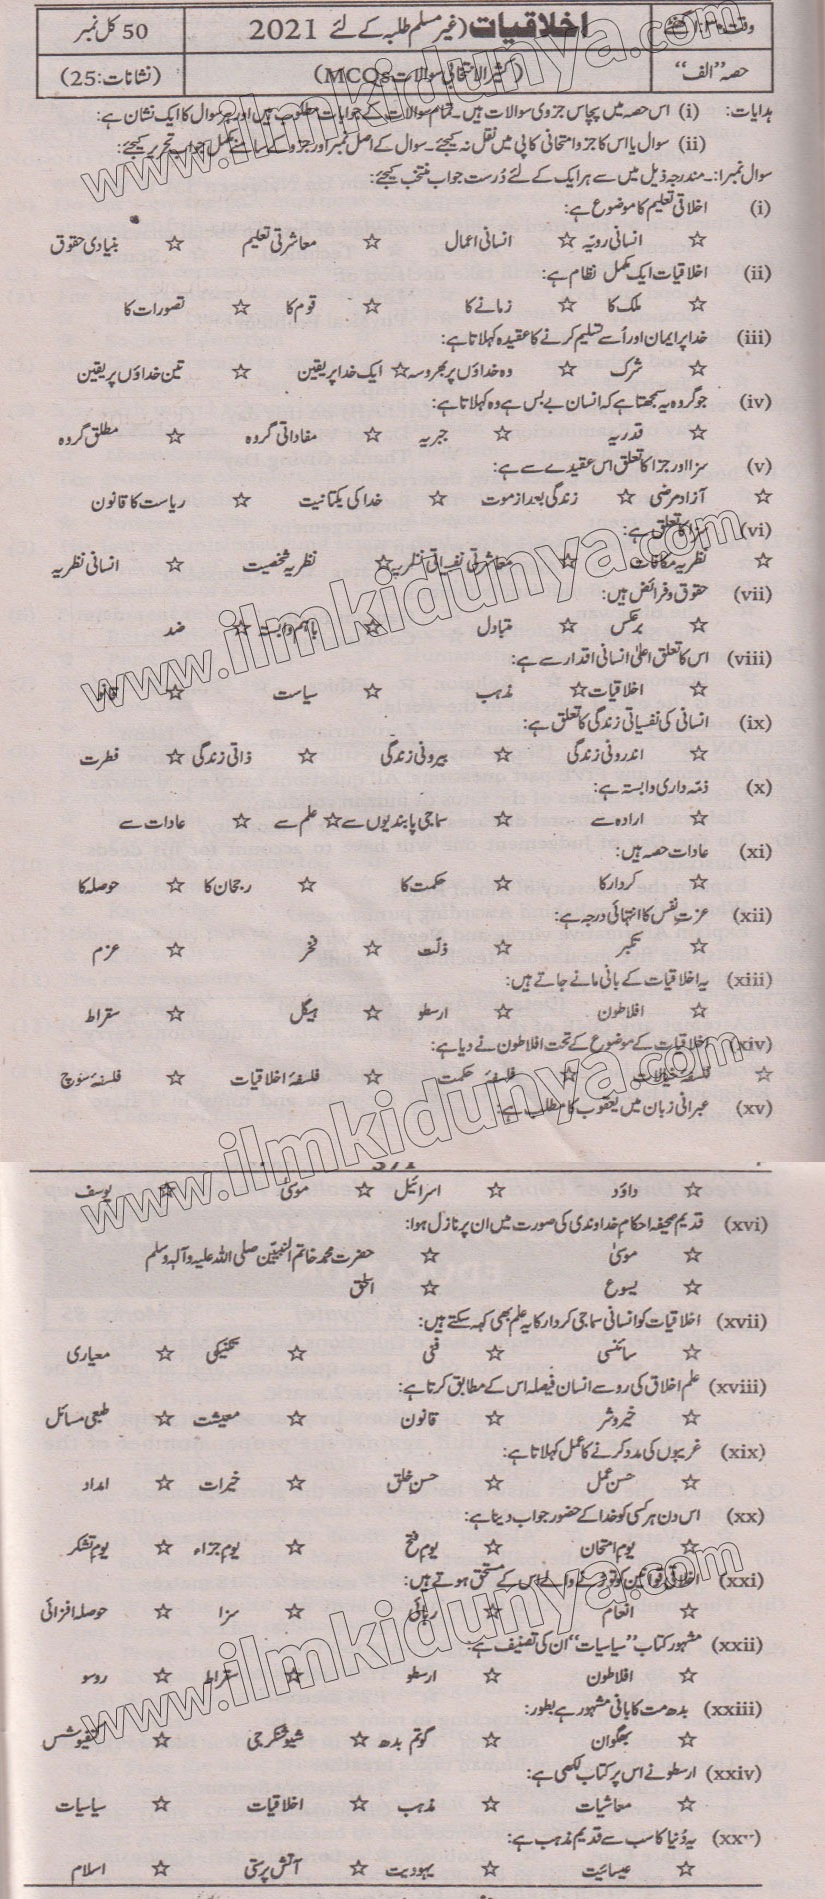 وقت: ۳۰ منٹ اخلاقیات (غیر مسلم طلبہ کے لئے) 2021 50 کل نمبر
حصہ "الف" (کثیر الانتخابی سوالات MCQs) (نشانات: 25)
ہدایات: (i) اس حصہ میں پچاس جزوی سوالات ہیں۔ تمام سوالات کے جوابات مطلوب ہیں اور ہر سوال کا ایک نشان ہے:
(ii) سوال یا اس کا جزو امتحانی کاپی میں نقل نہ کیجئے۔ سوال کے اصل نمبر اور جزو کے سامنے مکمل جواب تحریر کیجئے:
سوال نمبر 1:۔ مندرجہ ذیل میں سے ہر ایک کے لئے دُرست جواب منتخب کیجئے:
(i) اخلاقی تعلیم کا موضوع ہے:
☆ انسانی رویّہ ☆ انسانی اعمال ☆ معاشرتی تعلیم ☆ بنیادی حقوق
(ii) اخلاقیات ایک مکمل نظام ہے:
☆ ملک کا ☆ زمانے کا ☆ قوم کا ☆ تصورات کا
(iii) خدا پر ایمان اور اُسے تسلیم کرنے کا عقیدہ کہلاتا ہے:
☆ شرک ☆ وہ خداؤں پر بھروسہ ☆ ایک خدا پر یقین ☆ تین خداؤں پر یقین
(iv) جو گروہ یہ سمجھتا ہے کہ انسان بے بس ہے وہ کہلاتا ہے:
☆ قدریہ ☆ جبریہ ☆ مفاداتی گروہ ☆ مطلق گروہ
(v) سزا اور جزا کا تعلق اس عقیدے سے ہے:
☆ آزاد مرضی ☆ زندگی بعد از موت ☆ خدا کی یکتانیت ☆ ریاست کا قانون
(vi) سزا کا تعلق ہے:
☆ نظریہ مکافات ☆ معاشرتی نفسیاتی نظریہ ☆ نظریہ شخصیت ☆ انسانی نظریہ
(vii) حقوق و فرائض ہیں:
☆ برعکس ☆ متبادل ☆ باہم وابستہ ☆ ضد
(viii) اس کا تعلق اعلیٰ انسانی اقدار سے ہے:
☆ اخلاقیات ☆ مذہب ☆ سیاست ☆
(ix) انسانی کی نفسیاتی زندگی کا تعلق ہے:
☆ اندرونی زندگی ☆ بیرونی زندگی ☆ ذاتی زندگی ☆ فطرت
(x) ذمّہ داری وابستہ ہے:
☆ ارادہ سے ☆ سماجی پابندیوں سے ☆ علم سے ☆ عادات سے
(xi) عادات حصہ ہیں:
☆ کردار کا ☆ حکمت کا ☆ رجحان کا ☆ حوصلہ کا
(xii) عزتِ نفس کا انتہائی درجہ ہے:
☆ تکبر ☆ ذلّت ☆ فخر ☆ عزم
(xiii) یہ اخلاقیات کے بانی مانے جاتے ہیں:
☆ افلاطون ☆ ارسطو ☆ ہیگل ☆ سقراط
(xiv) اخلاقیات کے موضوع کے تحت افلاطون نے دیا ہے:
☆ فلسفۂ خیالات ☆ فلسفۂ حکمت ☆ فلسفۂ اخلاقیات ☆ فلسفۂ سوچ
(xv) عبرانی زبان میں یعقوب کا مطلب ہے:
☆ داؤد ☆ اسرائیل ☆ موسیٰ ☆ یوسف
(xvi) قدیم صحیفہ احکامِ خداوندی کی صورت میں ان پر نازل ہوا:
☆ موسیٰ ☆ حضرت محمد خاتم النبیّین صلی اللہ علیہ وآلہٖ وسلم
☆ یسوع ☆ اسحٰق
(xvii) اخلاقیات کو انسانی سماجی کردار کا یہ علم بھی کہہ سکتے ہیں:
☆ سائنسی ☆ فنی ☆ تکنیکی ☆ معیاری
(xviii) علم اخلاق کی رو سے انسان فیصلہ اس کے مطابق کرتا ہے:
☆ خیر و شر ☆ قانون ☆ معیشت ☆ طبعی مسائل
(xix) غریبوں کی مدد کرنے کا عمل کہلاتا ہے:
☆ حسنِ عمل ☆ حسنِ خلق ☆ خیرات ☆ امداد
(xx) اس دن ہر کسی کو خدا کے حضور جواب دینا ہے:
☆ یومِ امتحان ☆ یومِ فتح ☆ یومِ جزاء ☆ یومِ تشکر
(xxi) اخلاقی قوانین کو توڑنے والے اس کے مستحق ہوتے ہیں:
☆ انعام ☆ رہائی ☆ سزا ☆ حوصلہ افزائی
(xxii) مشہور کتاب "سیاسیات" ان کی تصنیف ہے:
☆ افلاطون ☆ ارسطو ☆ سقراط ☆ روسو
(xxiii) بدھ مت کا بانی مشہور ہے بطور:
☆ بھگوان ☆ گوتم بدھ ☆ شیو شنکر جی ☆ کنفیوشس
(xxiv) ارسطو نے اس پر کتاب لکھی ہے:
☆ معاشیات ☆ مذہب ☆ اخلاقیات ☆ سیاسیات
(xxv) یہ دُنیا کا سب سے قدیم مذہب ہے:
☆ عیسائیت ☆ یہودیت ☆ آتش پرستی ☆ اسلام
www.ilmkidunya.com
www.ilmkidunya.com
www.ilmkidunya.com
www.ilmkidunya.com